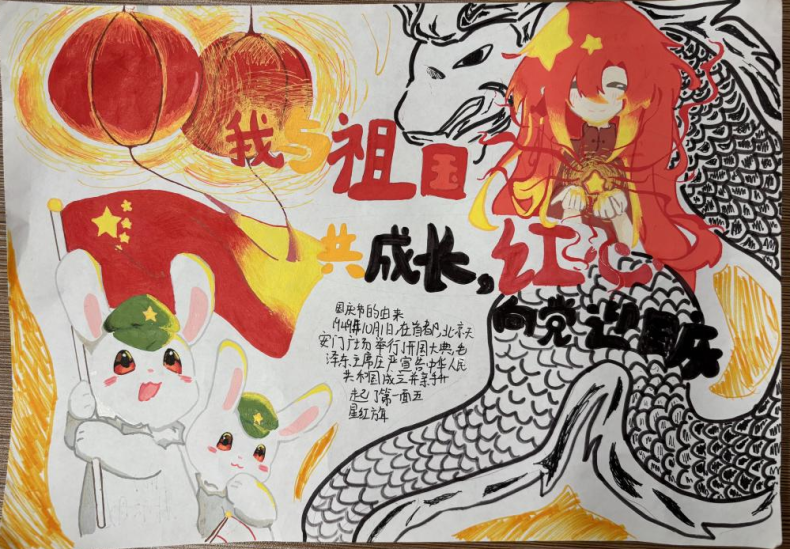 我与祖国
共成长,红心
向党迎国庆
国庆节的由来
1949年10月1日,在首都北京天
安门广场举行了开国大典,毛
泽东主席庄严宣告中华人民
共和国成立并亲手升
起了第一面五
星红旗